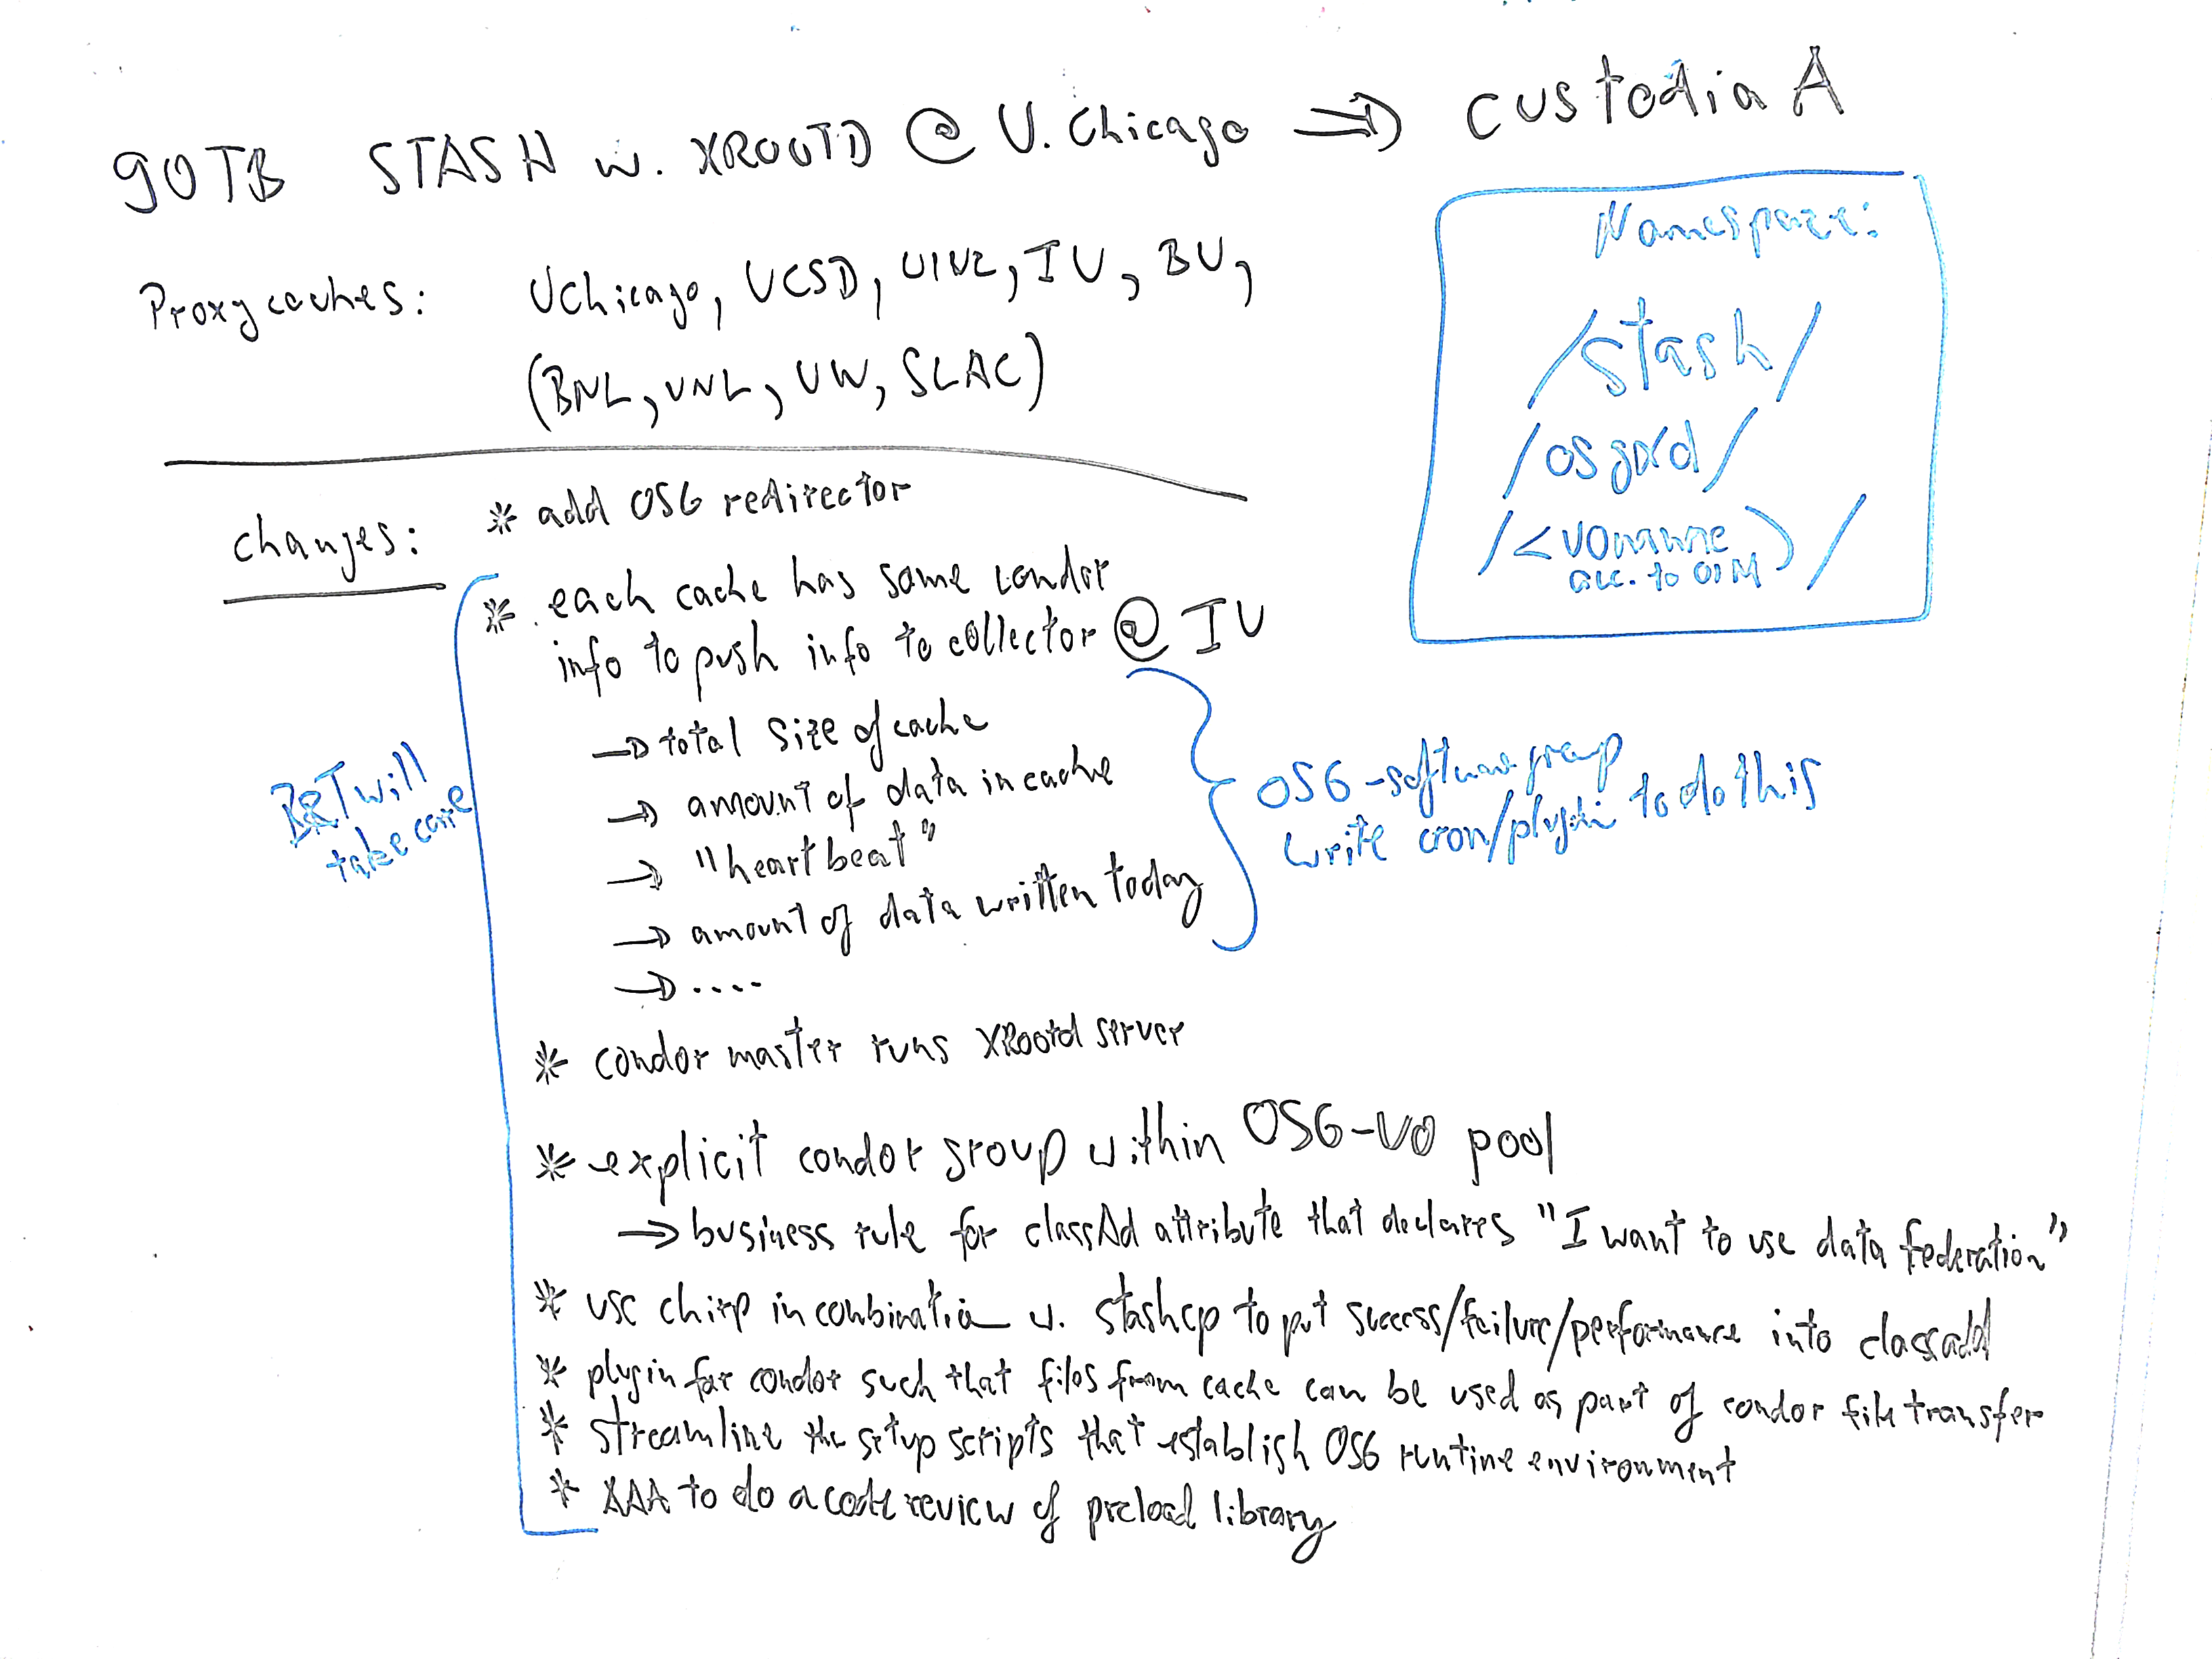 90TB STASH w. XROOTD @ U. Chicago ⇒ custodia A
Namespace:
/stash/
/osgxrd/
/<VOname
acc. to OIM>/
Proxy caches: UChicago, UCSD, UIUC, IU, BU,
(BNL, UNL, UW, SLAC)
changes: * add OSG redirector
* each cache has some condor
info to push info to collector @ IU
→ total size of cache
→ amount of data in cache
→ "heartbeat"
→ amount of data written today
→ ....
will
take care
OSG-software group
write cron/plugin to do this
* condor master runs XRootd server
* explicit condor group within OSG-VO pool
→ business rule for classAd attribute that declares "I want to use data federation"
* use chirp in combination w. stashcp to put success/failure/performance into classadd
* plugin for condor such that files from cache can be used as part of condor file transfer
* streamline the setup scripts that establish OSG runtime environment
* XAA to do a code review of preload library